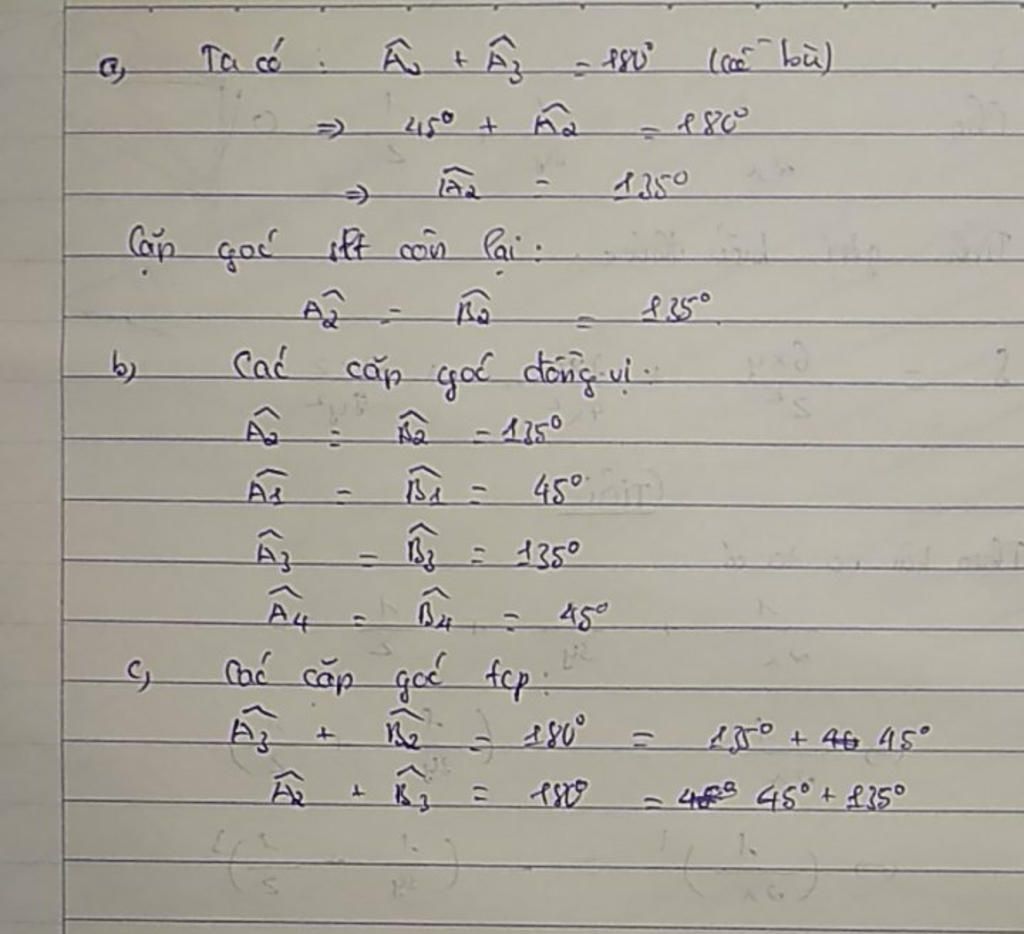 a, Ta có : Â₁ + Â₃ = 180° (góc bù)
=> 45° + Â₂ = 180°
=> Â₂ = 135°
Cặp góc slt còn lại :
Â₂ = B̂₂ = 135°
b, Các cặp góc đồng vị :
Â₂ = B̂₂ = 135°
Â₁ = B̂₁ = 45°
Â₃ = B̂₃ = 135°
Â₄ = B̂₄ = 45°
c, Các cặp góc tcp :
Â₃ + B̂₂ = 180° = 135° + 45°
Â₂ + B̂₃ = 180° = 45° + 135°